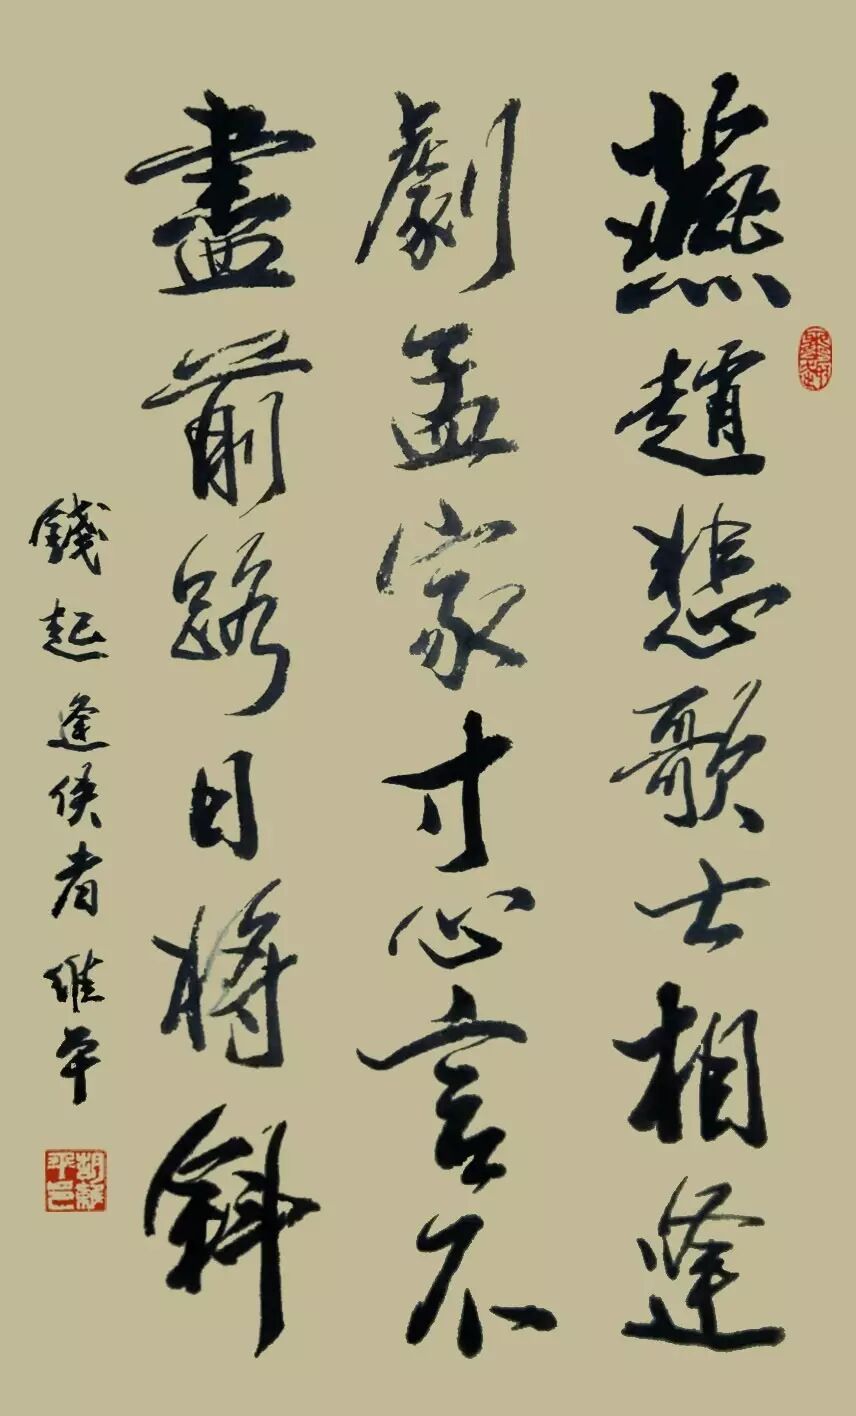 燕趙悲歌士相逢
劇孟家寸心言不
盡前路日將斜
錢起逢俠者維平
胡維平印